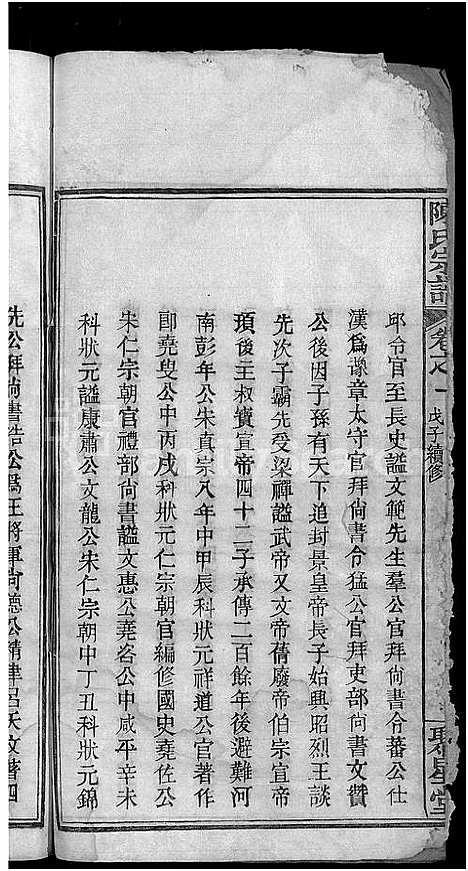 陳氏宗譜
卷之一
戊子續修
聚星堂
邱令官至長史謚文範先生羣公官拜尚書令蕃公仕
漢為豫章太守官拜尚書令猛公官拜吏部尚書文贊
公後因子孫有天下追封景皇帝長子始興昭烈王談
先次子霸先受梁禪謚武帝又文帝蒨廢帝伯宗宣帝
頊後主叔寶宣帝四十二子承傳二百餘年後避難河
南彭年公朱真宗八年中甲辰科狀元祥道公官著作
即堯叟公中丙戌科狀元仁宗朝官編修國史堯佐公
宋仁宗朝官禮部尚書謚文惠公堯咨公中咸平辛未
科狀元謚康肅公文龍公朱仁宗朝中丁丑科狀元錦
先公拜尚書誥公為王將軍尚德公精律呂天文著四